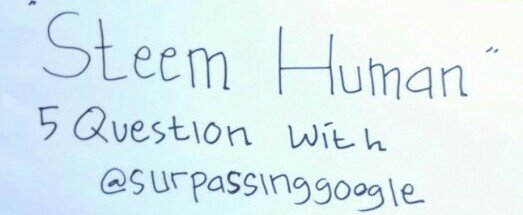 "Steem Human"
5 Question with
@surpassinggoogle